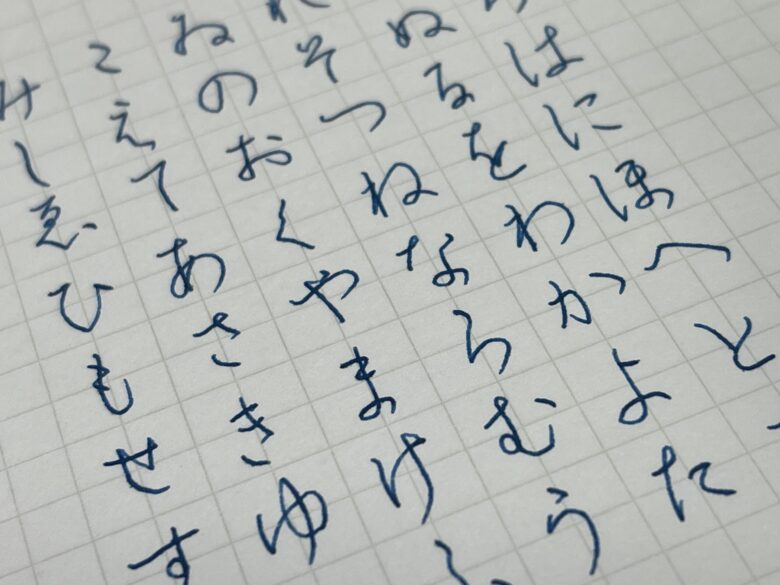 はにほへと
ぬるをわかよた
そつねならむう
ゐのおくやまけ
こえてあさきゆ
みしゑひもせす